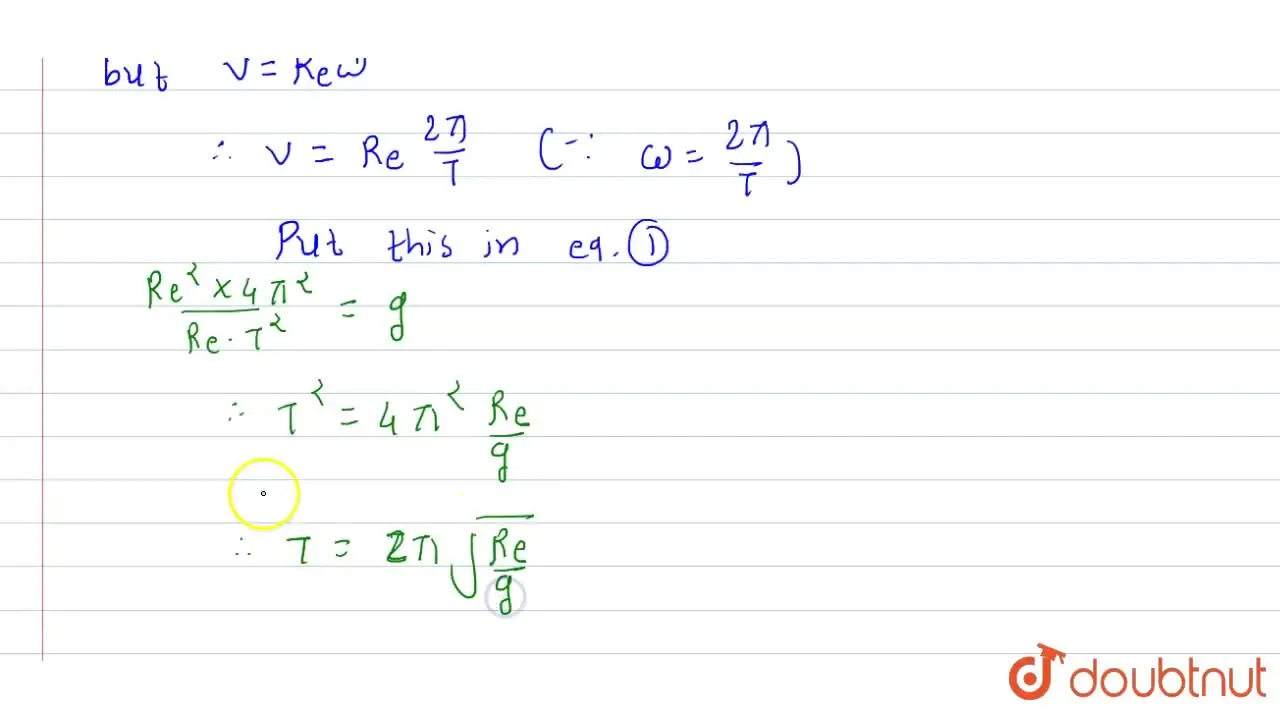 but v = Reω
∴ v = Re 2π/T (∵ ω = 2π/T)
Put this in eq. ①
Re² × 4π² / Re · T² = g
∴ T² = 4π² Re/g
∴ T = 2π √(Re/g)
doubtnut